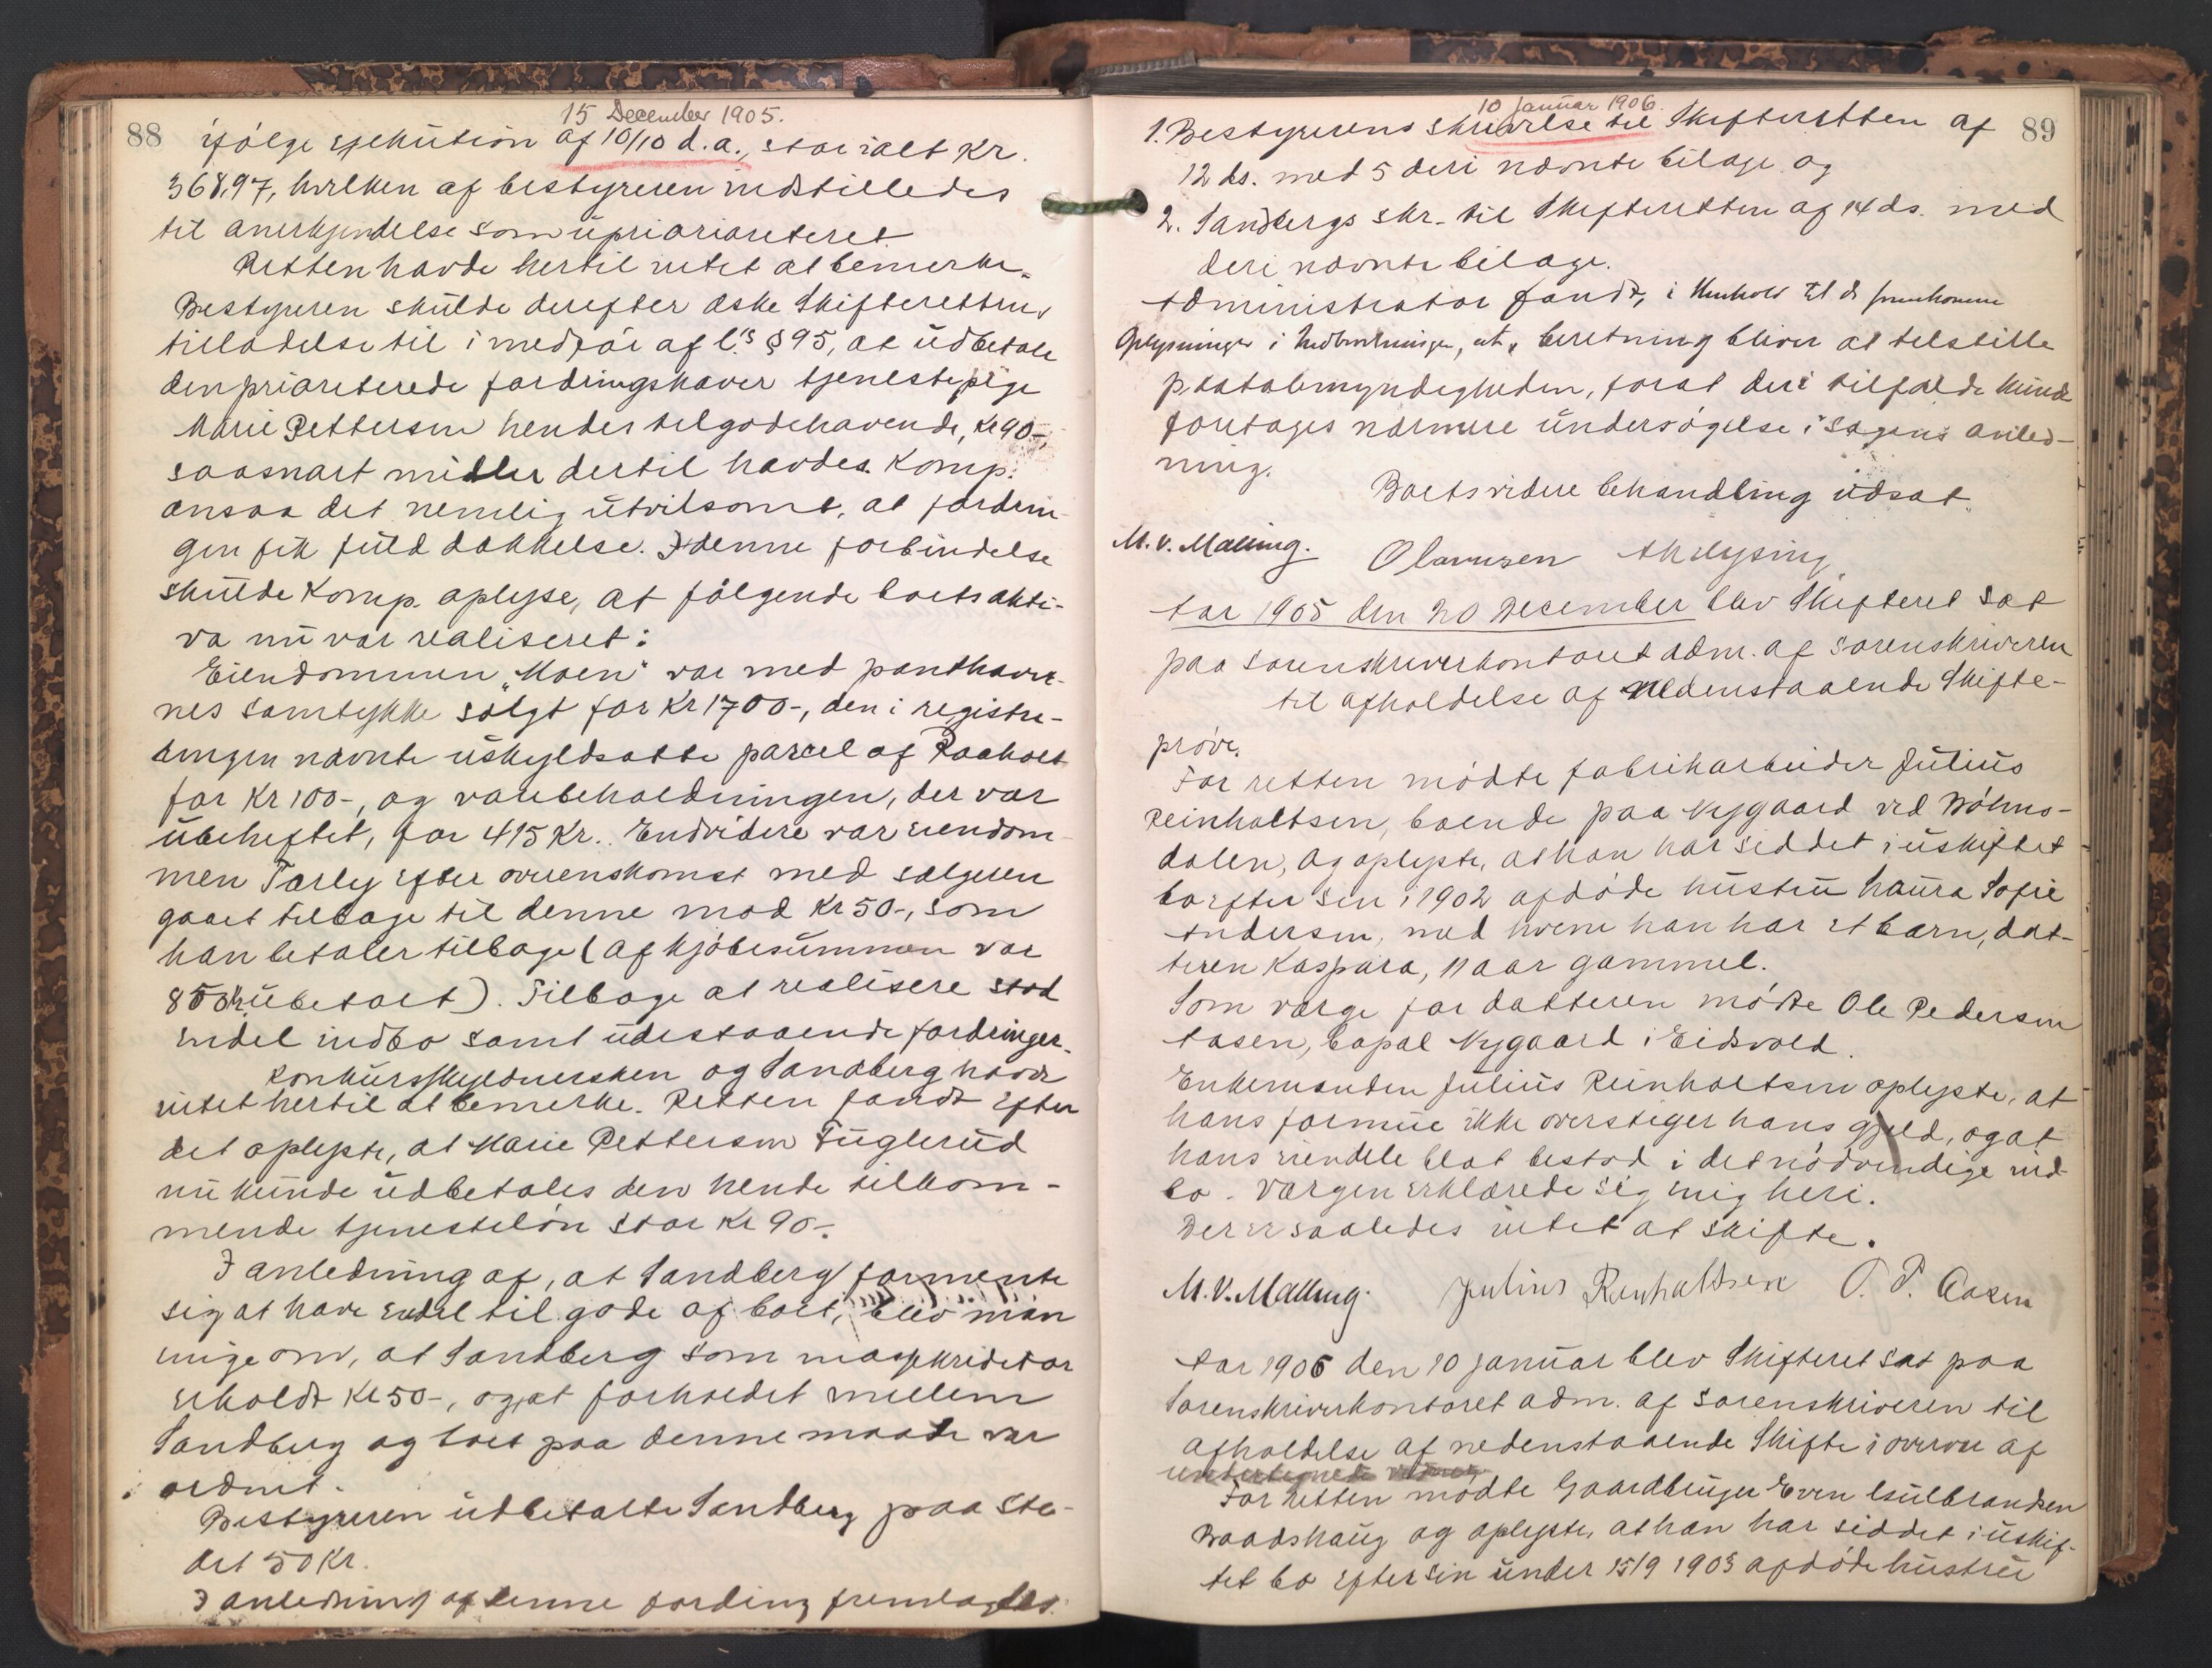 15 December 1905.
88
ifølge exekution af 10/10 d.a., stor ialt Kr.
368,97, hvilken af bestyreren indstilledes
til anerkjendelse som uprioriareteret.
Retten havde hertil intet at bemerke.
Bestyreren skulde derefter æske Skifterettens
tilladelse til i medfør af l.'s § 95, at udbetale
den prioriterede fordringshaver tjenestepige
Marie Pettersen hendes tilgodehavende, Kr 90-,
saasnart midler dertil havdes. Komp.
ansaa det nemlig utvilsomt, at fordrin-
gen fik fuld dækkelse. I denne forbindelse
skulde Komp. oplyse, at følgende boets akti-
va nu var realiseret:
Eiendommen "Moen" var med panthaver-
nes samtykke solgt for Kr 1700-, den i registre-
ringen nævnte uskyldsatte parcel af Raaholt
for Kr 100-, og varebeholdningen, der var
ubeheftet, for 415 Kr. Endvidere var eiendom-
men Tærly efter overenskomst med sælgeren
gaaet tilbage til denne mod Kr 50-, som
han betaler tilbage (af kjøbesummen var
850 Kr ubetalt). Tilbage at realisere stod
endel indbo samt udestaaende fordringer.
Konkursskyldnersken og Sandberg havde
intet hertil at bemerke. Retten fandt efter
det oplyste, at Marie Pettersen Fuglerud
nu kunde udbetales den hende tilkom-
mende tjenesteløn stor Kr 90-.
I anledning af, at Sandberg formente
sig at have endel til gode af boet, blev man
enige om, at Sandberg som massekreditor
erholdt Kr 50-, og at forholdet mellem
Sandberg og boet paa denne maade var
ordnet.
Bestyreren udbetalte Sandberg paa ste-
det 50 Kr.
I anledning af denne fording fremlagdes
10 Januar 1906.
89
1. Bestyrerens skrivelse til Skifteretten af
12 ds. med 5 deri nævnte bilage og
2. Sandbergs skr. til Skifteretten af 14 ds. med
deri nævnte bilage.
Administrator fandt, i Henhold til de fremkomne
Oplysninger i Indberetningen, at beretning bliver at tilstille
paatalemyndigheden, forat der i tilfælde kunde
foretages nærmere undersøgelse i sagens anled-
ning.
Boets videre behandling udsat.
M. V. Malling. Olavesen
Aar 1905 den 20 December blev Skifteret sat
paa sorenskriverkontoret adm. af sorenskriveren
til afholdelse af nedenstaaende Skifte-
prøve.
For retten mødte fabrikarbeider Julius
Reinholtsen, boende paa Nygaard ved Bøhns-
dalen, og oplyste, at han har siddet i uskiftet
bo efter sin i 1902 afdøde hustru Laura Sofie
Andersen, med hvem han har et barn, dat-
teren Kaspara, 11 aar gammel.
Som værge for datteren mødte Ole Pedersen
Aasen, bopæl Nygaard i Eidsvold.
Enkemanden Julius Reinholtsen oplyste, at
hans formue ikke overstiger hans gjeld, og at
hans eiendele blot bestod i det nødvendige ind-
bo. Værgen erklærede sig enig heri.
Der er saaledes intet at skifte.
M. V. Malling. Julius Reinholtsen O. P. Aasen
Aar 1906 den 10 januar blev Skifteret sat paa
Sorenskriverkontoret adm. af sorenskriveren til
afholdelse af nedenstaaende Skifte i overvær af
undertegnede vidner
For retten mødte Gaardbruger Even Gulbrandsen
Baadshaug og oplyste, at han har siddet i uskif-
tet bo efter sin under 15/9 1903 afdøde hustru